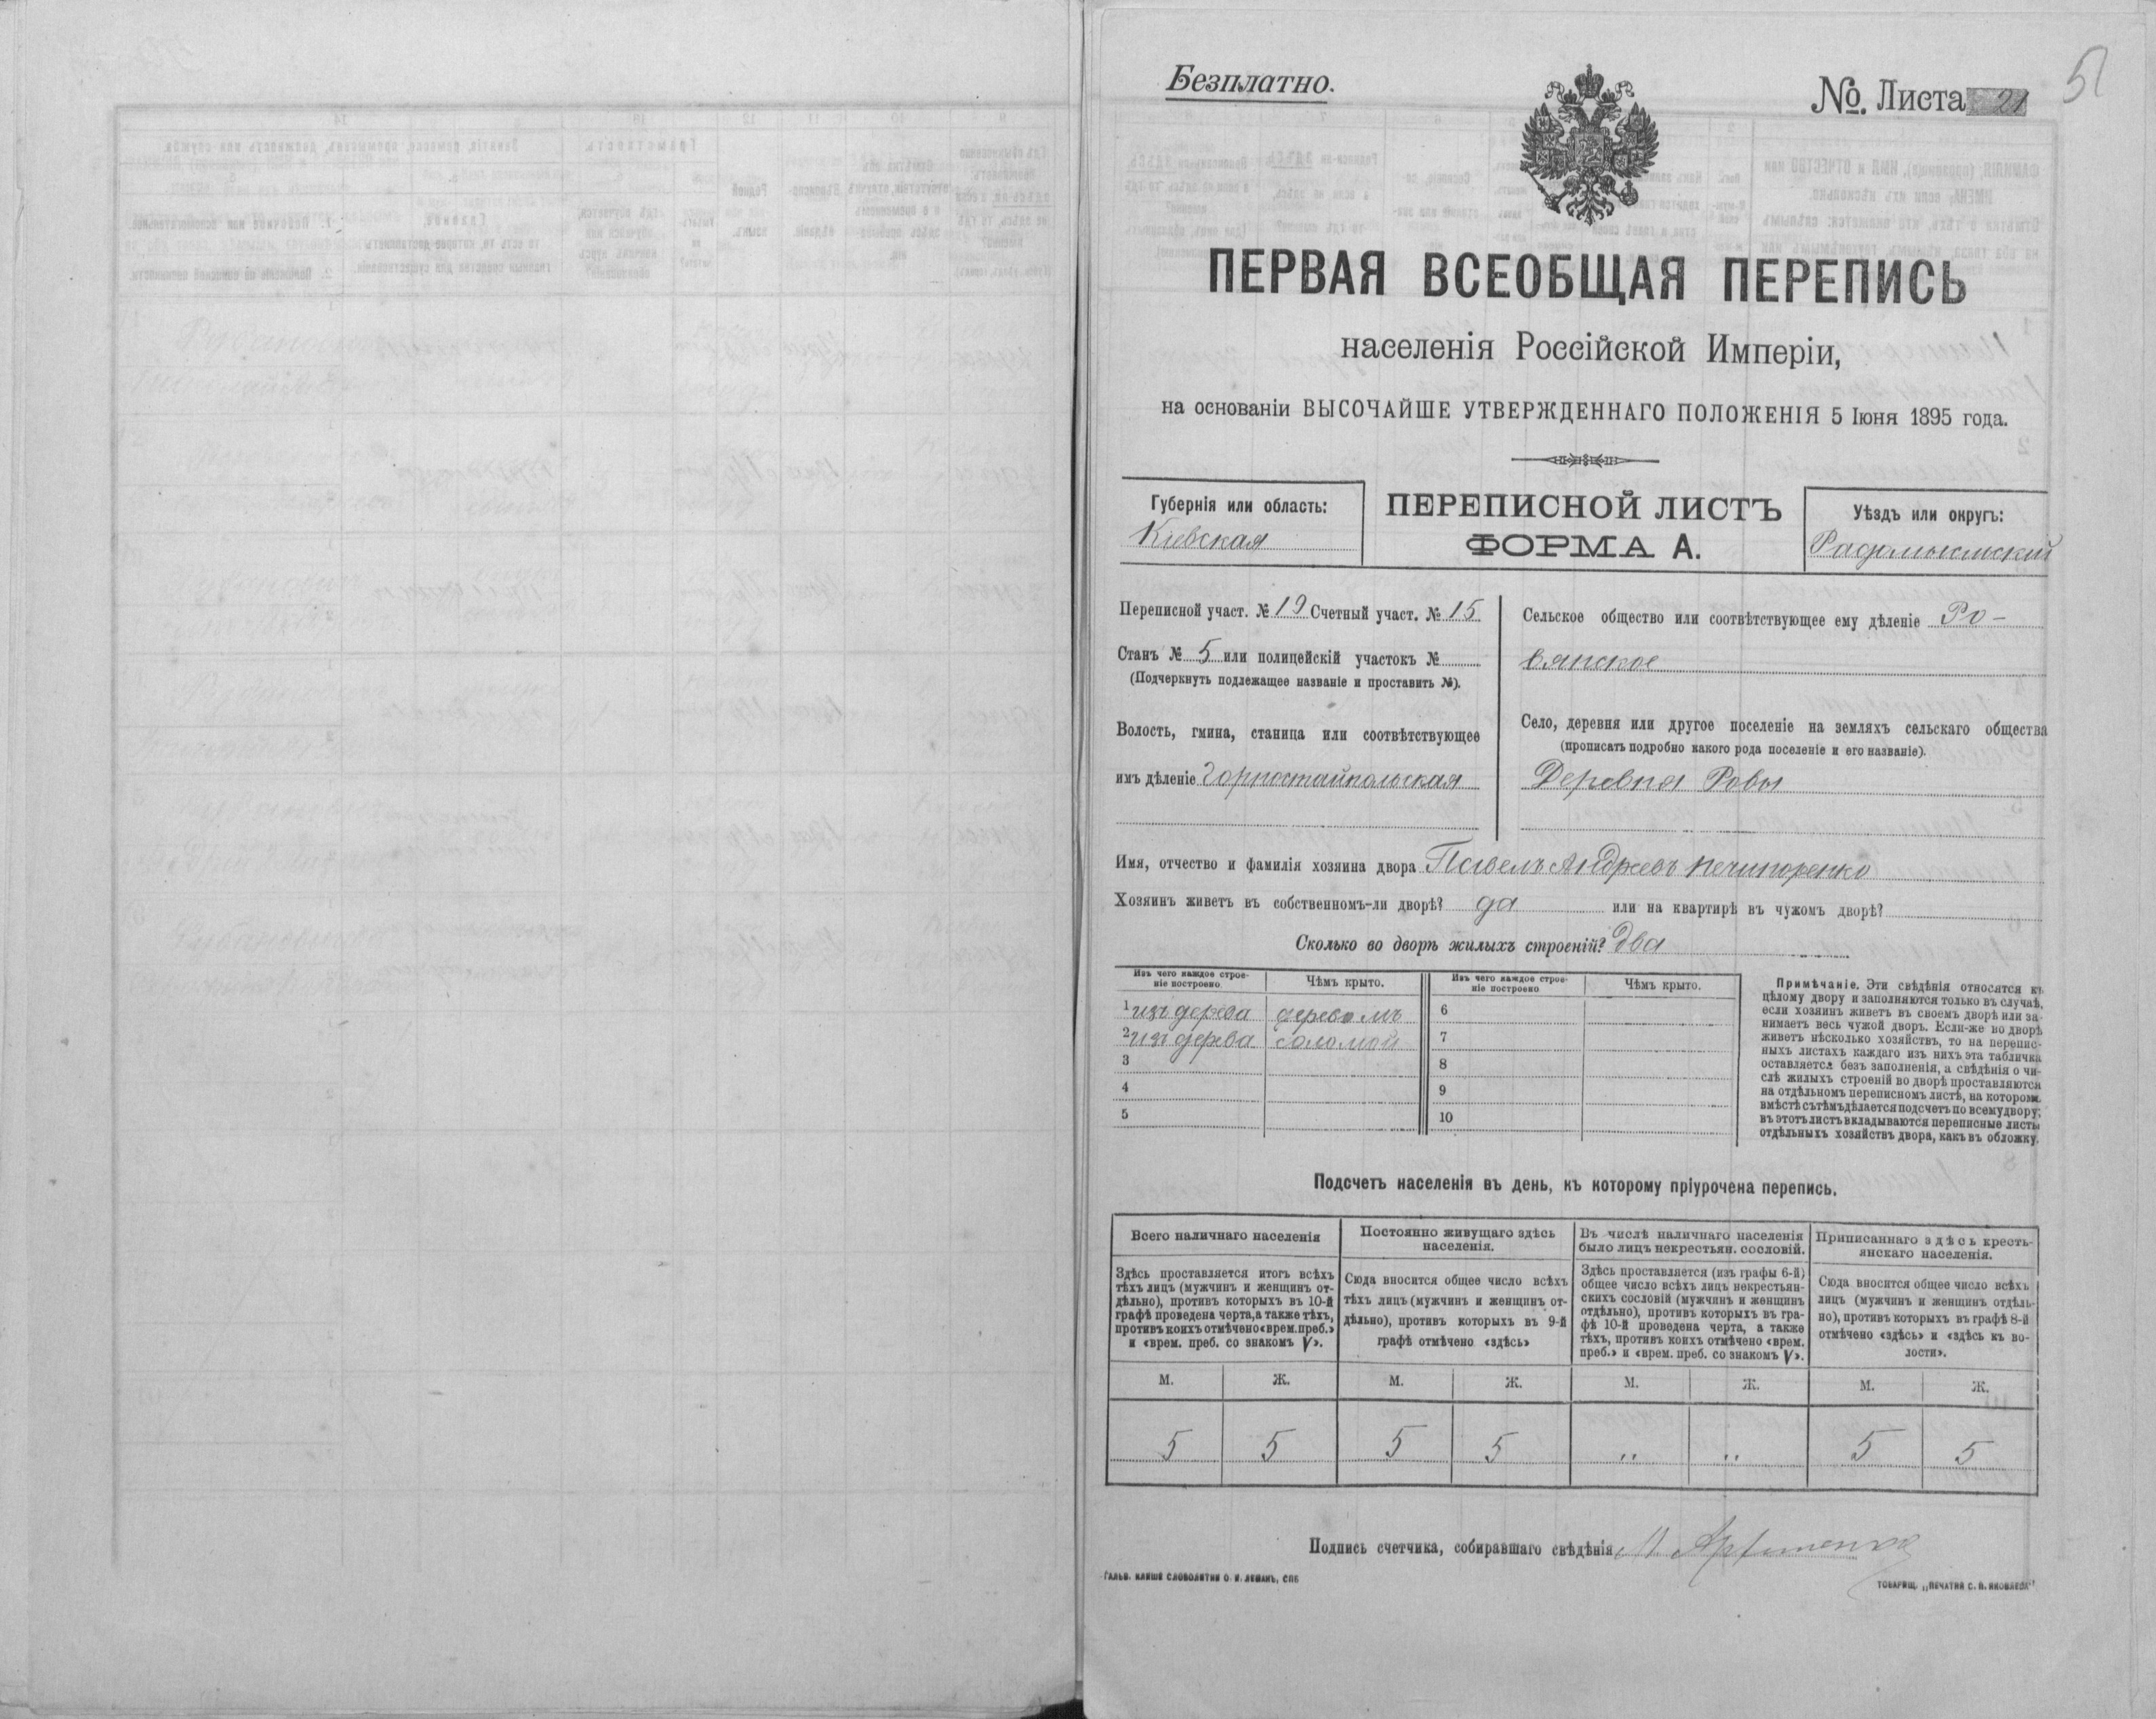 Безплатно.
№. Листа 21
51
ПЕРВАЯ ВСЕОБЩАЯ ПЕРЕПИСЬ
населенія Россійской Имперіи,
на основаніи ВЫСОЧАЙШЕ УТВЕРЖДЕННАГО ПОЛОЖЕНІЯ 5 Іюня 1895 года.
Губернія или область:
Кіевская
ПЕРЕПИСНОЙ ЛИСТЪ
ФОРМА А.
Уѣздъ или округъ:
Радомысльский
Переписной участ. № 19 Счетный участ. № 15
Станъ № 5 или полицейскій участокъ №
(Подчеркнуть подлежащее названіе и проставить №).
Волость, гмина, станица или соотвѣтствующее
имъ дѣленіе Горностайпольская
Сельское общество или соотвѣтствующее ему дѣленіе Ро-
вянское
Село, деревня или другое поселеніе на земляхъ сельскаго общества
(прописать подробно какого рода поселеніе и его названіе).
Деревня Ровы
Имя, отчество и фамилія хозяина двора Павелъ Андреевъ Нечипоренко
Хозяинъ живетъ въ собственномъ-ли дворѣ? да или на квартирѣ въ чужомъ дворѣ?
Сколько во дворѣ жилыхъ строеній? два
Изъ чего каждое строе-
ніе построено
Чѣмъ крыто.
Изъ чего каждое строе-
ніе построено
Чѣмъ крыто.
1 изъ дерева деревомъ 6
2 изъ дерева соломой 7
3 8
4 9
5 10
Примѣчаніе. Эти свѣдѣнія относятся къ
цѣлому двору и заполняются только въ случаѣ,
если хозяинъ живетъ въ своемъ дворѣ или за-
нимаетъ весь чужой дворъ. Если-же во дворѣ
живетъ нѣсколько хозяйствъ, то на перепис-
ныхъ листахъ каждаго изъ нихъ эта табличка
оставляется безъ заполненія, а свѣдѣнія о чи-
слѣ жилыхъ строеній во дворѣ проставляются
на отдѣльномъ переписномъ листѣ, на которомъ
вмѣстѣ съ тѣмъ дѣлается подсчетъ по всему двору;
въ этотъ листъ вкладываются переписные листы
отдѣльныхъ хозяйствъ двора, какъ въ обложку.
Подсчетъ населенія въ день, къ которому пріурочена перепись.
Всего наличнаго населенія
Постоянно живущаго здѣсь
населенія.
Въ числѣ наличнаго населенія
было лицъ некрестьян. сословій.
Приписаннаго здѣсь кресть-
янскаго населенія.
Здѣсь проставляется итогъ всѣхъ
тѣхъ лицъ (мужчинъ и женщинъ от-
дѣльно), противъ которыхъ въ 10-й
графѣ проведена черта, а также тѣхъ,
противъ коихъ отмѣчено «врем. преб.»
и «врем. преб. со знакомъ V».
Сюда вносится общее число всѣхъ
тѣхъ лицъ (мужчинъ и женщинъ от-
дѣльно), противъ которыхъ въ 9-й
графѣ отмѣчено «здѣсь»
Здѣсь проставляется (изъ графы 6-й)
общее число всѣхъ лицъ некрестьян-
скихъ сословій (мужчинъ и женщинъ
отдѣльно), противъ которыхъ въ гра-
фѣ 10-й проведена черта, а также
тѣхъ, противъ коихъ отмѣчено «врем.
преб.» и «врем. преб. со знакомъ V».
Сюда вносится общее число всѣхъ
лицъ (мужчинъ и женщинъ отдѣль-
но), противъ которыхъ въ графѣ 8-й
отмѣчено «здѣсь» и «здѣсь къ во-
лости».
М. Ж. М. Ж. М. Ж. М. Ж.
5 5 5 5 „ „ 5 5
Подпись счетчика, собиравшаго свѣдѣнія
ГАЛЬВ. КЛИШЕ СЛОВОЛИТНИ О. И. ЛЕМАНЪ, СПБ
ТОВАРИЩ. „ПЕЧАТНЯ С. П. ЯКОВЛЕВА“